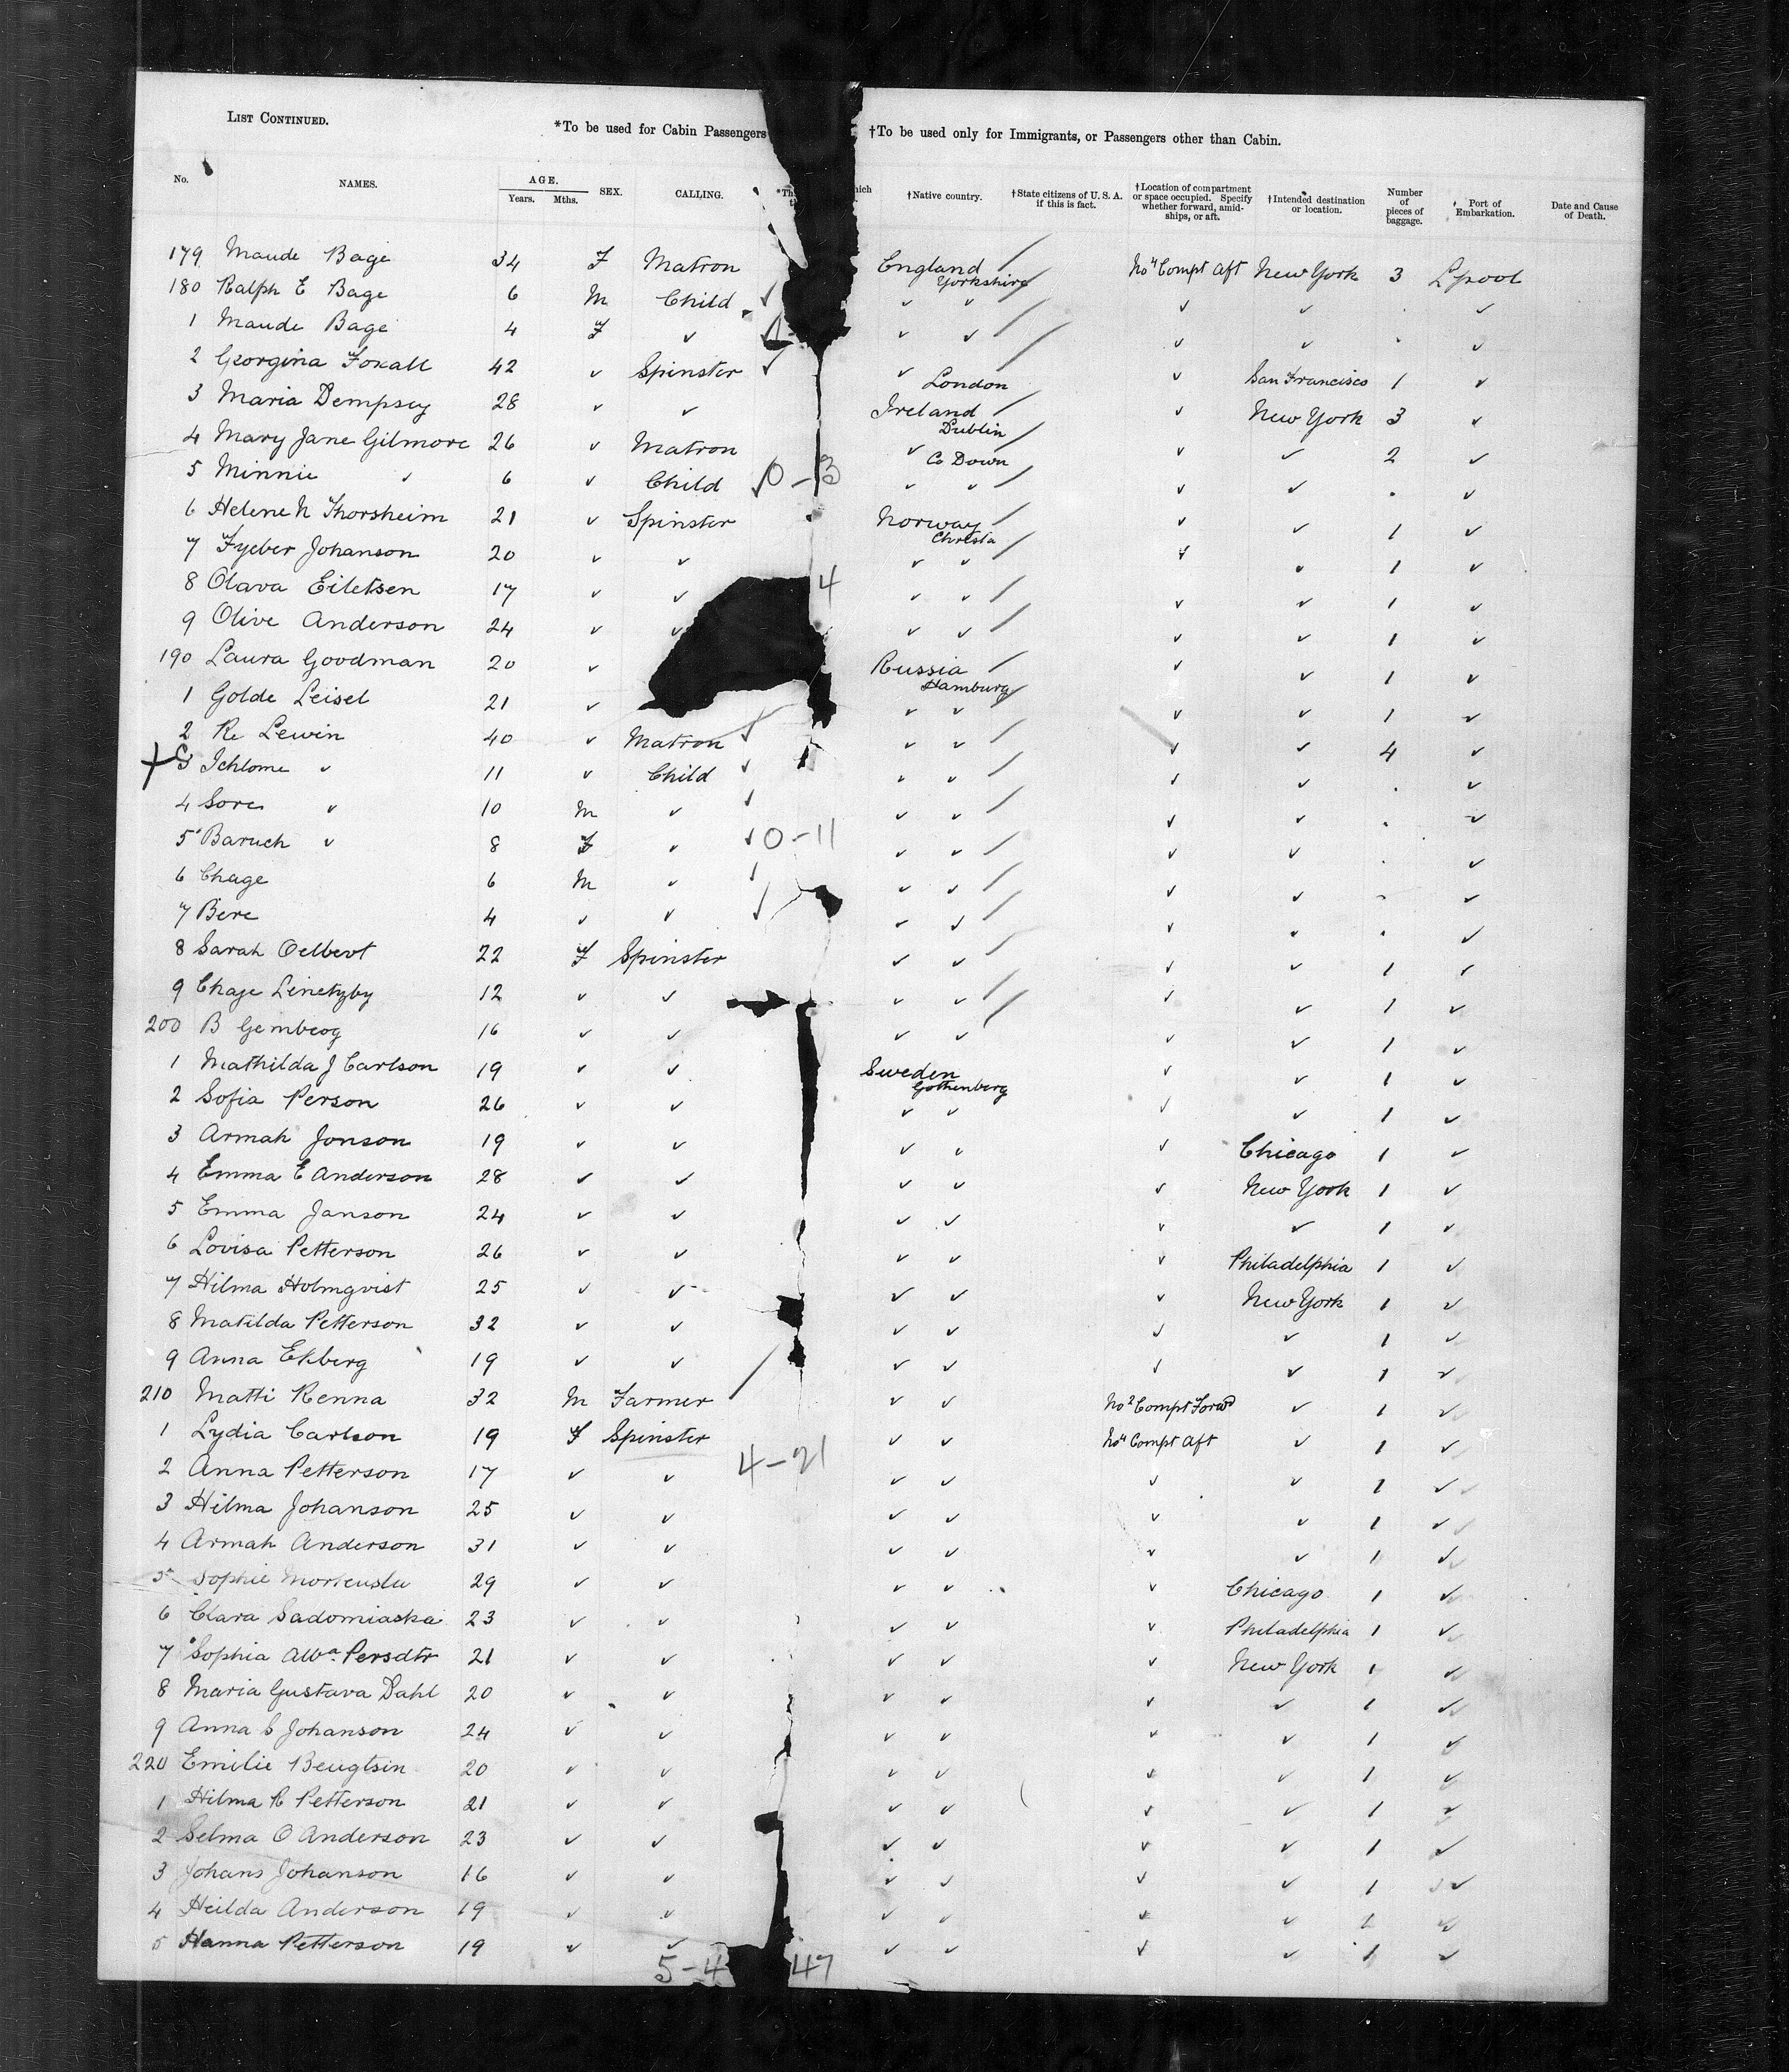 LIST CONTINUED.
*To be used for Cabin Passengers †To be used only for Immigrants, or Passengers other than Cabin.
No. NAMES. AGE. Years. Mths. SEX. CALLING. †Native country. †State citizens of U. S. A. if this is fact. †Location of compartment or space occupied. Specify whether forward, amidships, or aft. †Intended destination or location. Number of pieces of baggage. Port of Embarkation. Date and Cause of Death.
179 Maude Bage 34 F Matron England Yorkshire No 4 Compt Aft New York 3 L'pool
180 Ralph E Bage 6 M Child ✓ ✓ ✓ ✓ ✓ ✓
1 Maude Bage 4 F ✓ ✓ ✓ ✓ ✓ ✓
2 Georgina Foxall 42 ✓ Spinster ✓ ✓ London ✓ San Francisco 1 ✓
3 Maria Dempsey 28 ✓ ✓ Ireland Dublin ✓ New York 3 ✓
4 Mary Jane Gilmore 26 ✓ Matron ✓ Co Down ✓ ✓ 2 ✓
5 Minnie ✓ 6 ✓ Child ✓ 0-3 ✓ ✓ ✓ ✓ ✓
6 Helene N Thorsheim 21 ✓ Spinster Norway Christa ✓ ✓ 1 ✓
7 Fyeber Johanson 20 ✓ ✓ ✓ ✓ ✓ 1 ✓
8 Olava Eiletsen 17 ✓ ✓ 4 ✓ ✓ ✓ ✓ 1 ✓
9 Olive Anderson 24 ✓ ✓ ✓ ✓ ✓ ✓ 1 ✓
190 Laura Goodman 20 ✓ Russia Hamburg ✓ ✓ 1 ✓
1 Golde Leisel 21 ✓ ✓ ✓ ✓ ✓ 1 ✓
2 Re Lewin 40 ✓ Matron ✓ ✓ ✓ ✓ ✓ 4 ✓
3 Ichlome ✓ 11 ✓ Child ✓ ✓ ✓ ✓ ✓ ✓
4 Sore ✓ 10 M ✓ ✓ ✓ ✓ ✓ ✓ ✓
5 Baruch ✓ 8 F ✓ ✓ 0-11 ✓ ✓ ✓ ✓ ✓
6 Chage 6 M ✓ ✓ ✓ ✓ ✓ ✓ ✓
7 Bere 4 ✓ ✓ ✓ ✓ ✓ ✓ ✓
8 Sarah Oelbert 22 F Spinster ✓ ✓ ✓ ✓ 1 ✓
9 Chaje Linetzby 12 ✓ ✓ ✓ ✓ ✓ ✓ 1 ✓
200 B 16 ✓ ✓ ✓ ✓ ✓ ✓ 1 ✓
1 Mathilda J Carlson 19 ✓ ✓ Sweden Gothenberg ✓ ✓ 1 ✓
2 Sofia Person 26 ✓ ✓ ✓ ✓ ✓ ✓ 1 ✓
3 Armah Jonson 19 ✓ ✓ ✓ ✓ ✓ Chicago 1 ✓
4 Emma E Anderson 28 ✓ ✓ ✓ ✓ ✓ New York 1 ✓
5 Emma Janson 24 ✓ ✓ ✓ ✓ ✓ ✓ 1 ✓
6 Lovisa Petterson 26 ✓ ✓ ✓ ✓ ✓ Philadelphia 1 ✓
7 Hilma Holmqvist 25 ✓ ✓ ✓ ✓ ✓ New York 1 ✓
8 Matilda Petterson 32 ✓ ✓ ✓ ✓ ✓ ✓ 1 ✓
9 Anna Ekberg 19 ✓ ✓ ✓ ✓ ✓ ✓ 1 ✓
210 Matti Renna 32 M Farmer ✓ ✓ No 2 Compt Forwd ✓ 1 ✓
1 Lydia Carlson 19 F Spinster ✓ ✓ No 4 Compt Aft ✓ 1 ✓
2 Anna Petterson 17 ✓ ✓ 4-21 ✓ ✓ ✓ ✓ 1 ✓
3 Hilma Johanson 25 ✓ ✓ ✓ ✓ ✓ ✓ 1 ✓
4 Armah Anderson 31 ✓ ✓ ✓ ✓ ✓ ✓ 1 ✓
5 Sophie 29 ✓ ✓ ✓ ✓ ✓ Chicago 1 ✓
6 Clara Sadomiaska 23 ✓ ✓ ✓ ✓ ✓ Philadelphia 1 ✓
7 Sophia Alba. Persdtr 21 ✓ ✓ ✓ ✓ ✓ New York 1 ✓
8 Maria Gustava Dahl 20 ✓ ✓ ✓ ✓ ✓ ✓ 1 ✓
9 Anna S Johanson 24 ✓ ✓ ✓ ✓ ✓ ✓ 1 ✓
220 Emilie Beugtsin 20 ✓ ✓ ✓ ✓ ✓ ✓ 1 ✓
1 Hilma C Petterson 21 ✓ ✓ ✓ ✓ ✓ ✓ 1 ✓
2 Selma O Anderson 23 ✓ ✓ ✓ ✓ ✓ ✓ 1 ✓
3 Johans Johanson 16 ✓ ✓ ✓ ✓ ✓ ✓ 1 ✓
4 Heilda Anderson 19 ✓ ✓ ✓ ✓ ✓ ✓ 1 ✓
5 Hanna Petterson 19 ✓ ✓ ✓ ✓ ✓ ✓ 1 ✓
5-4 47